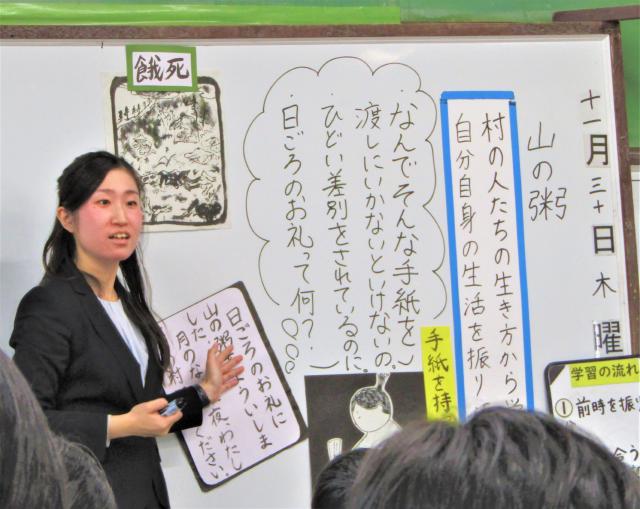 十一月三十日木曜
山の粥
村の人たちの生き方から
自分自身の生活を振り
なんでそんな手紙を
渡しにいかないといけないの。
ひどい差別をされているのに。
日ごろのお礼って何？
餓死
手紙を持
日ごろのお礼に
山の粥
ようい しま
した
月の
夜、わたし
ください
学習の流れ
① 前時を振り
合う